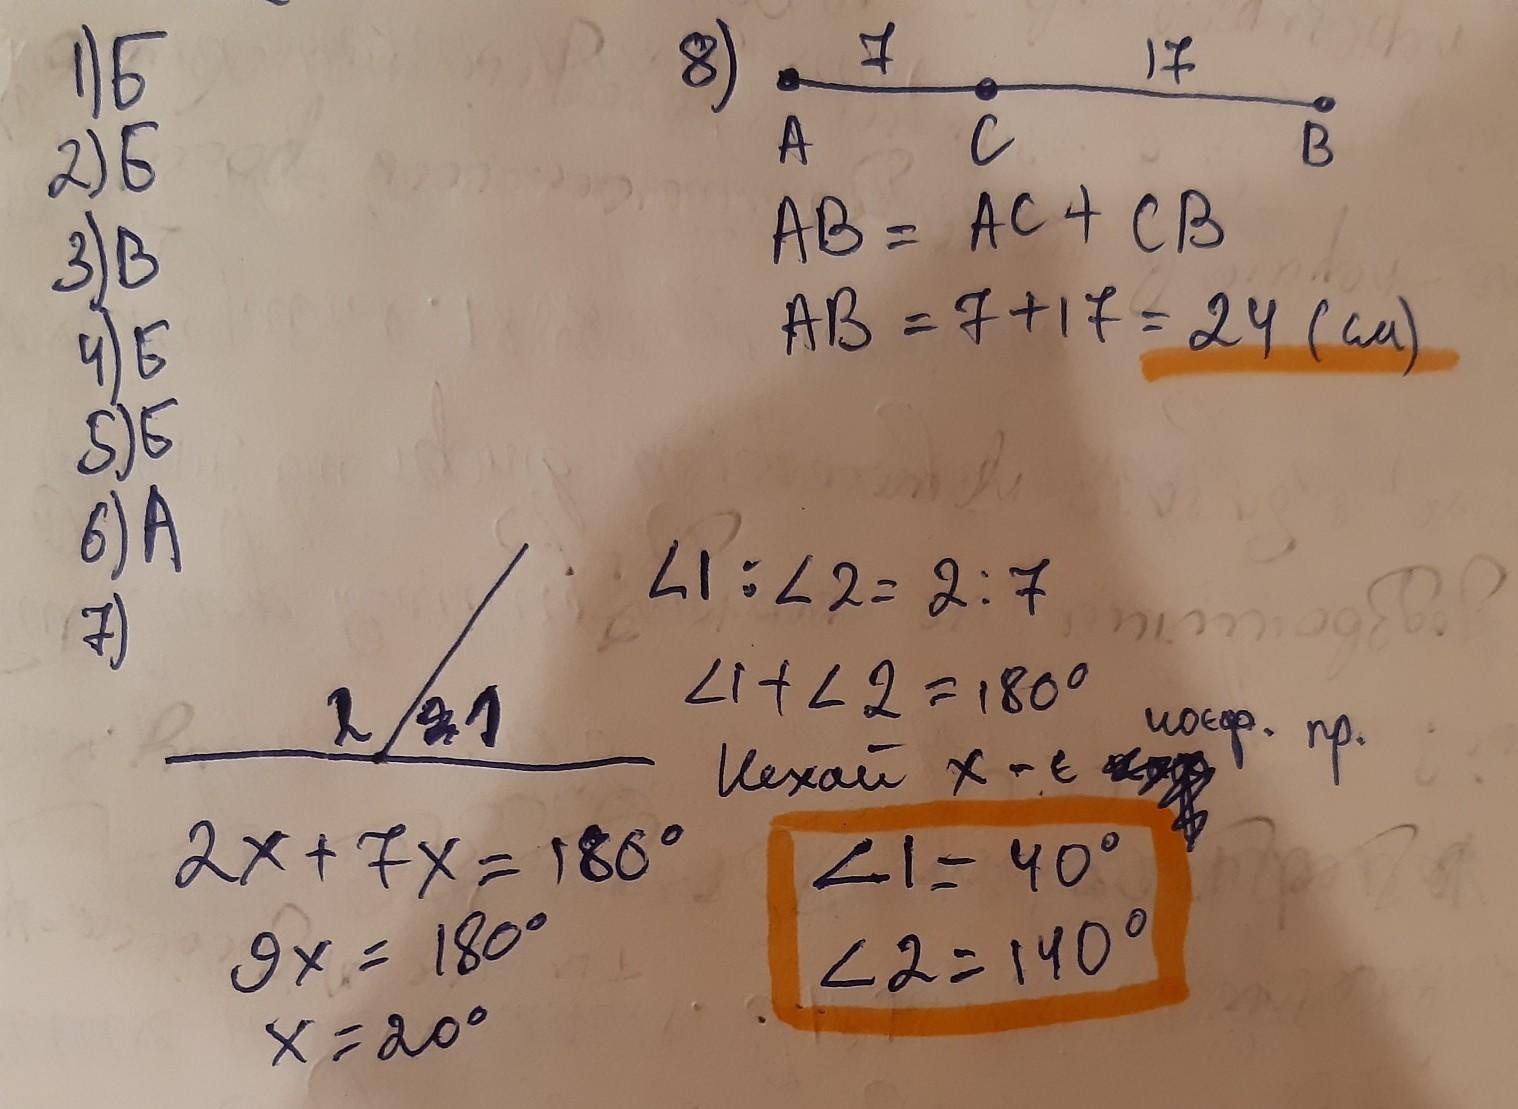 1) Б
2) Б
3) В
4) Б
5) Б
6) А
7)
2 1
∠1 : ∠2 = 2 : 7
∠1 + ∠2 = 180°
Нехай x - є коеф. пр.
2x + 7x = 180°
9x = 180°
x = 20°
∠1 = 40°
∠2 = 140°
8) 7 17
A C B
AB = AC + CB
AB = 7 + 17 = 24 (см)